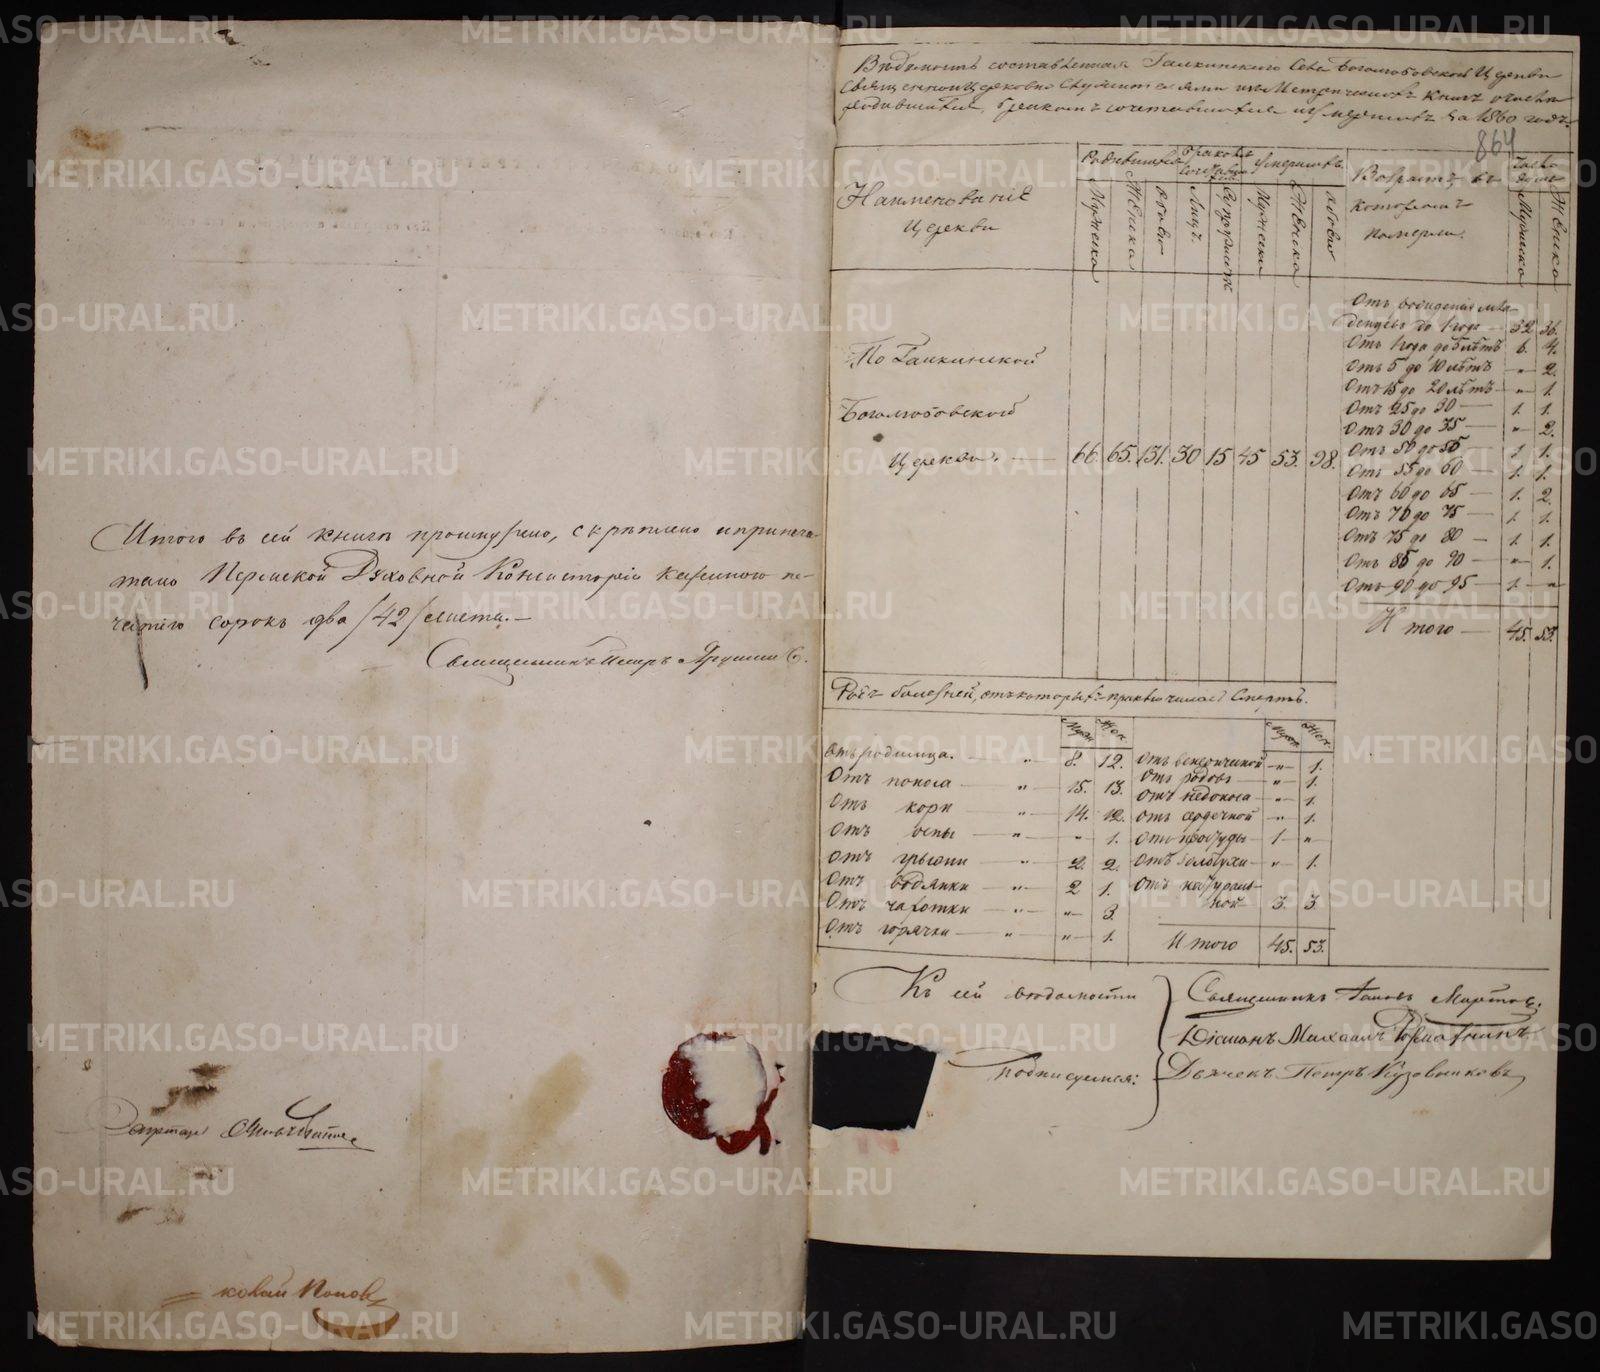 Итого въ сей книгѣ прошнуровано, скрѣплено и припеча-
тано Пермской Духовной Консисторіи казенною пе-
чатію сорокъ два /42/ листа.
Священникъ Петръ
Секретарь
ковай Попов
Вѣдомость составленная Галкинского Села Боголюбовской Церкви
Священноцерковно Служителями изъ Метрическихъ книгъ о числѣ
родившихся, бракомъ сочетавшихся и умершихъ за 1860 годъ.
864
Наименованіе
Церкви
Родившихся
Мужеска
Женска
Обоего
Бракомъ
Сочетавшихся
Лицъ
Супружествъ
Умершихъ
Мужеска
Женска
Обоего
Возрастъ въ
которомъ
померли.
Мужеска
Женска
По Галкинской
Боголюбовской
Церкви. 66. 65. 131. 30 15 45 53. 98.
Отъ рожденія мла
денцевъ до 1 года 32 36.
Отъ 1 года до 5 лѣтъ 6. 4.
Отъ 5 до 10 лѣтъ „ 2.
Отъ 15 до 20 лѣтъ „ 1.
Отъ 25 до 30 1. 1.
Отъ 30 до 35 „ 2.
Отъ 50 до 55 1. 1.
Отъ 55 до 60 1. 1.
Отъ 60 до 65 1. 2.
Отъ 70 до 75 1. 1.
Отъ 75 до 80 1. 1.
Отъ 85 до 90 „ 1.
Отъ 90 до 95 1. „
Итого 45. 53.
Родъ болезней, отъ которыхъ приключилась Смерть.
Муж. Жен. Муж. Жен.
Отъ родимца. 8. 12. Отъ венерической „ 1.
Отъ поноса 15. 13. Отъ родовъ „ 1.
Отъ кори 14. 12. Отъ недоноса „ 1.
Отъ оспы „ 1. Отъ сердечной „ 1.
Отъ грыжи 2. 2. Отъ простуды 1 „
Отъ водянки 2 1. Отъ золотухи „ 1.
Отъ чахотки „ 3. Отъ натураль-
ной 3. 3.
Отъ горячки „ 1. Итого 45. 53.
Къ сей вѣдомости
подписуемся:
Священникъ Мартов.
Діаконъ Михаилъ
Дьячекъ Петръ Кузовниковъ
METRIKI.GASO-URAL.RU